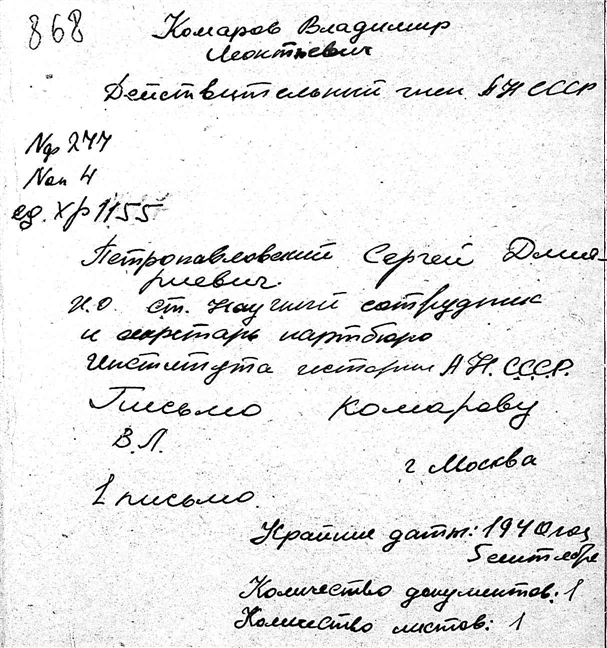 868
Комаров Владимир
Леонтьевич
Действительный член АН СССР
№ф 277
№оп 4
ед. хр 1155
Петропавловский Сергей Дмит-
риевич.
и.о. ст. научный сотрудник
и секретарь партбюро
Института истории АН.С.С.С.Р.
Письмо Комарову
В.Л.
г Москва
1 письмо.
Крайние даты: 1940 год
5 сентября
Количество документов: 1
Количество листов: 1